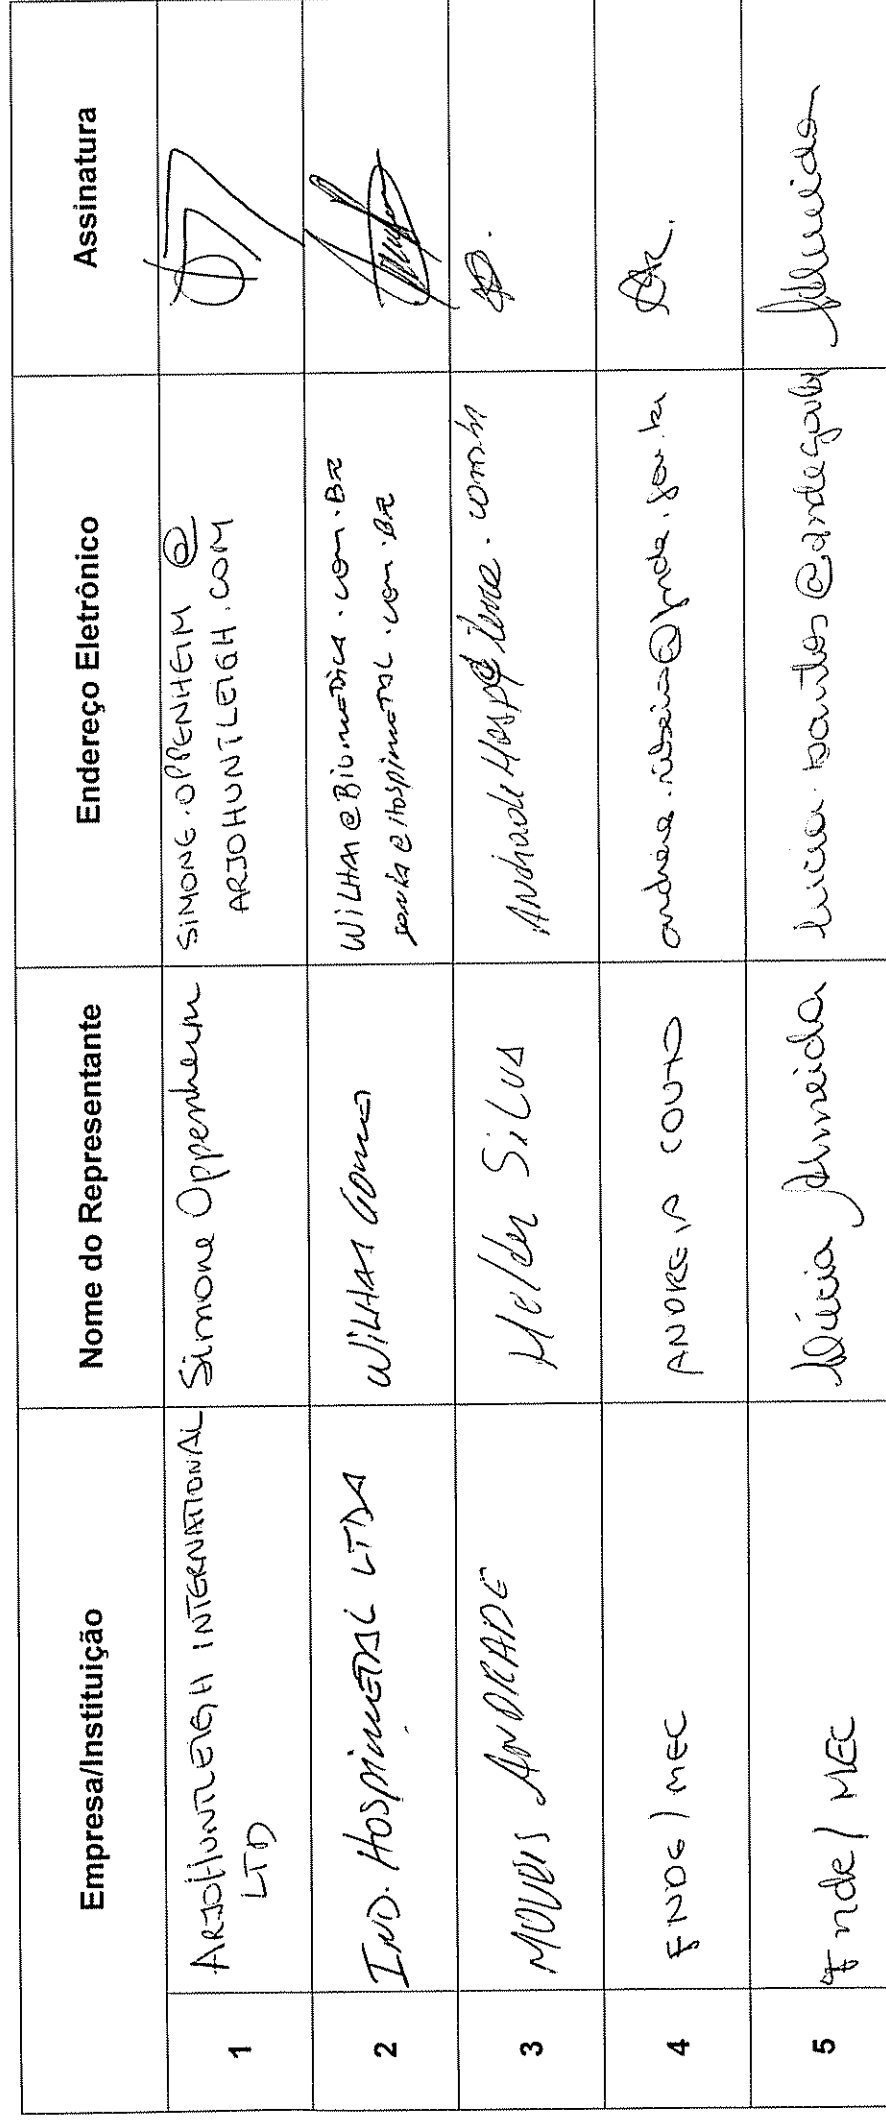 Empresa/Instituição Nome do Representante Endereço Eletrônico Assinatura
1 ARJOHUNTLEIGH INTERNATIONAL Simone Oppenheim SIMONE.OPPENHEIM @
LTD ARJOHUNTLEIGH.COM
2 IND. HOSPIMETAL LTDA WILHAN GOMES WILHAN@BIOMEDICA.COM.BR
@HOSPIMETAL.COM.BR
3 MOVEIS ANDRADE Helder SiLVA
4 FNDE/MEC ANDREIA COUTO andreia.ribeiro@fnde.gov.br
5 Fnde/MEC Lúcia Almeida lucia.santos@fnde.gov.br Almeida